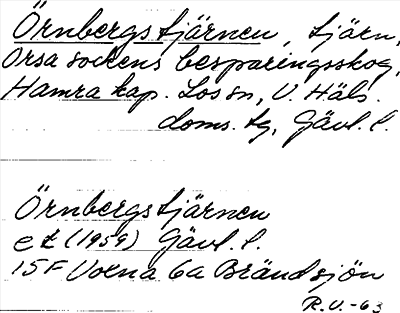 Örnbergstjärnen, tjärn,
Orsa sockens besparingsskog,
Hamra kap. Los sn, V. Häls.
doms. tg, Gävl. l.
Örnbergstjärnen
ek (1959) Gävl. l.
15F Voxna 6a Brändsjön
R.V.-63